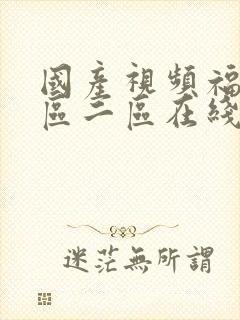 國產視頻福
區二區在綫
迷茫無所謂